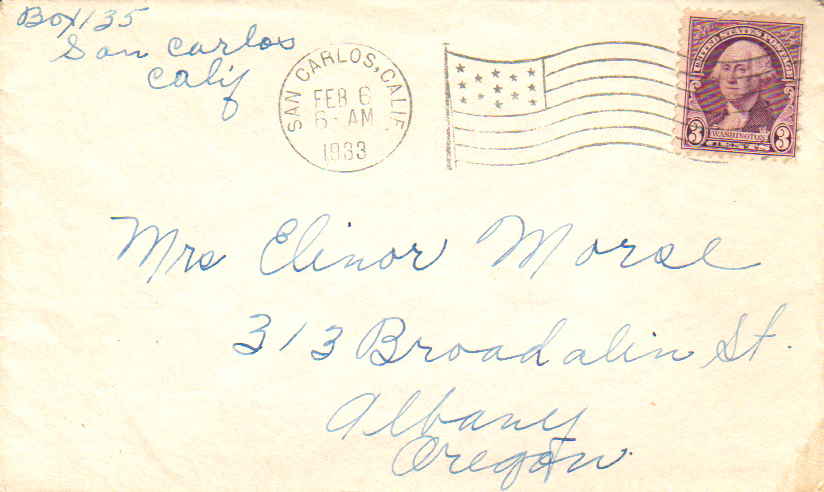 Box 135
San Carlos
Calif
SAN CARLOS, CALIF.
FEB 6
6 - AM
1933
UNITED STATES POSTAGE
WASHINGTON
3 3
Mrs Elinor Morse
313 Broadalin St.
Albany
Oregon.